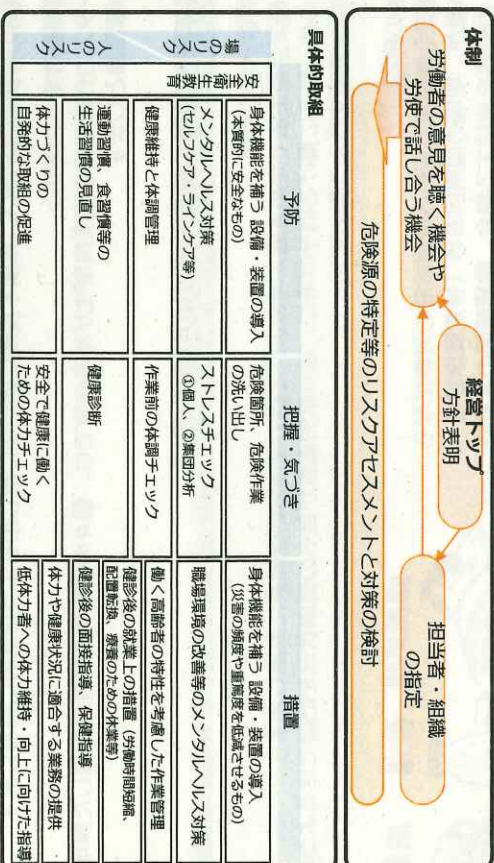 体制
経営トップ
方針表明
労働者の意見を聴く機会や
労使で話し合う機会
担当者・組織
の指定
危険源の特定等のリスクアセスメントと対策の検討
具体的取組
予防
把握・気づき
措置
場のリスク
人のリスク
安全衛生教育
身体機能を補う 設備・装置の導入
(本質的に安全なもの)
危険箇所、危険作業
の洗い出し
身体機能を補う 設備・装置の導入
(災害の頻度や重篤度を低減させるもの)
メンタルヘルス対策
(セルフケア・ラインケア等)
ストレスチェック
①個人、②集団分析
職場環境の改善等のメンタルヘルス対策
健康維持と体調管理
作業前の体調チェック
働く高齢者の特性を考慮した作業管理
運動習慣、食習慣等の
生活習慣の見直し
健康診断
健診後の就業上の措置(労働時間短縮、
配置転換、療養のための休業等)
健診後の面接指導、保健指導
体力づくりの
自発的な取組の促進
安全で健康に働く
ための体力チェック
体力や健康状況に適合する業務の提供
低体力者への体力維持・向上に向けた指導